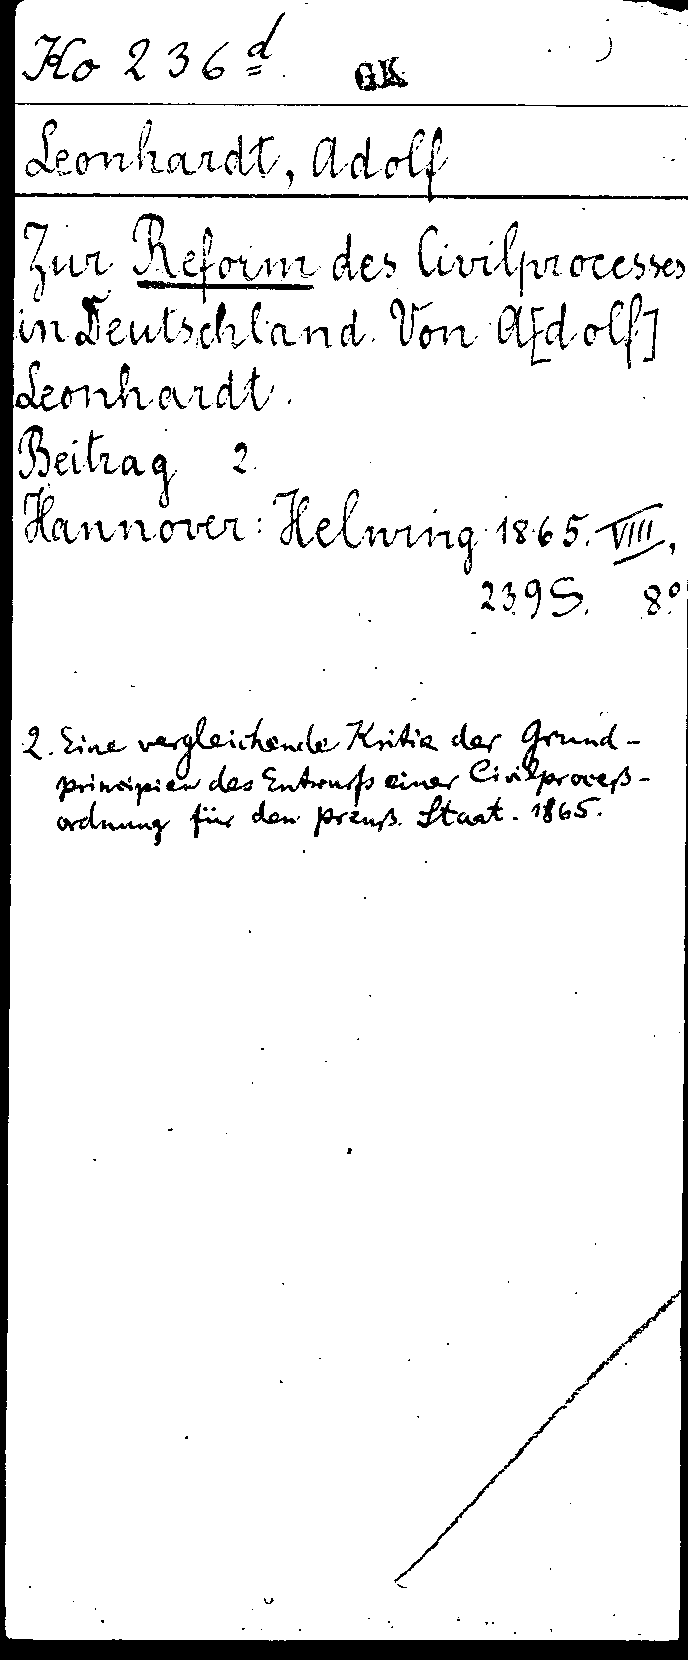 Ko 236 d GK
Leonhardt, Adolf
Zur Reform des Civilprocesses
in Deutschland. Von A[dolf]
Leonhardt.
Beitrag 2.
Hannover: Helwing 1865. VIII,
239 S. 8°
2. Eine vergleichende Kritik der Grund-
principien des Entwurfs einer Civilproceß-
ordnung für den preuß. Staat. 1865.